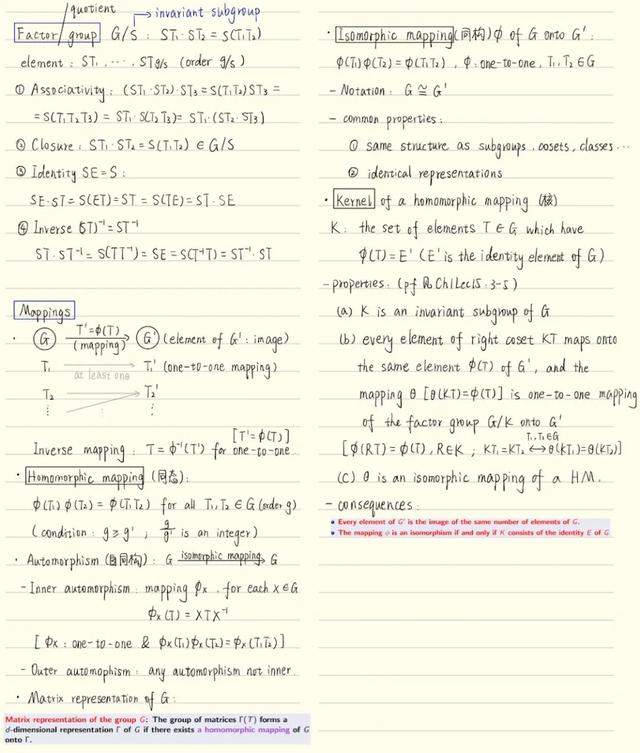 quotient
invariant subgroup
Factor group G/S : ST₁ · ST₂ = S(T₁T₂)
element : ST₁ , ⋯ , STg/s (order g/s)
① Associativity : (ST₁ · ST₂) · ST₃ = S(T₁T₂) ST₃ =
= S(T₁T₂T₃) = ST₁ · S(T₂T₃) = ST₁ · (ST₂ · ST₃)
② Closure : ST₁ · ST₂ = S(T₁T₂) ∈ G/S
③ Identity SE = S :
SE · ST = S(ET) = ST = S(TE) = ST · SE
④ Inverse (ST)⁻¹ = ST⁻¹
ST · ST⁻¹ = S(TT⁻¹) = SE = S(T⁻¹T) = ST⁻¹ · ST
Mappings
· G T'=ϕ(T) (mapping) → G' (element of G' : image)
T₁ → T₁' (one-to-one mapping)
at least one
T₂ → T₂'
⋮ ⋮
[T'=ϕ(T)]
Inverse mapping : T = ϕ⁻¹(T') for one-to-one
· Homomorphic mapping (同态) :
ϕ(T₁) ϕ(T₂) = ϕ(T₁T₂) for all T₁, T₂ ∈ G (order g)
(condition : g ≥ g' ; g/g' is an integer)
· Automorphism (自同构) : G isomorphic mapping → G
- Inner automorphism : mapping ϕx , for each X ∈ G
ϕx(T) = XTX⁻¹
[ ϕx : one-to-one & ϕx(T₁)ϕx(T₂) = ϕx(T₁T₂) ]
- Outer automophism : any automorphism not inner.
· Matrix representation of G :
Matrix representation of the group G: The group of matrices Γ(T) forms a
d-dimensional representation Γ of G if there exists a homomorphic mapping of G
onto Γ.
· Isomorphic mapping (同构) ϕ of G onto G' :
ϕ(T₁)ϕ(T₂) = ϕ(T₁T₂) , ϕ : one-to-one, T₁, T₂ ∈ G
- Notation : G ≅ G'
- common properties :
① same structure as subgroups, cosets, classes ⋯
② identical representations
· Kernel of a homomorphic mapping (核)
K : the set of elements T ∈ G which have
ϕ(T) = E' (E' is the identity element of G')
- properties : (pf Ch1Lec15 · 3-5)
(a) K is an invariant subgroup of G
(b) every element of right coset KT maps onto
the same element ϕ(T) of G', and the
mapping θ [θ(KT) = ϕ(T)] is one-to-one mapping
of the factor group G/K onto G'
T₁,T₂∈G
[ϕ(RT) = ϕ(T), R∈K ; KT₁=KT₂ ⟷ θ(KT₁)=θ(KT₂)]
(C) θ is an isomorphic mapping of a HM.
- consequences :
• Every element of G' is the image of the same number of elements of G.
• The mapping ϕ is an isomorphism if and only if K consists of the identity E of G